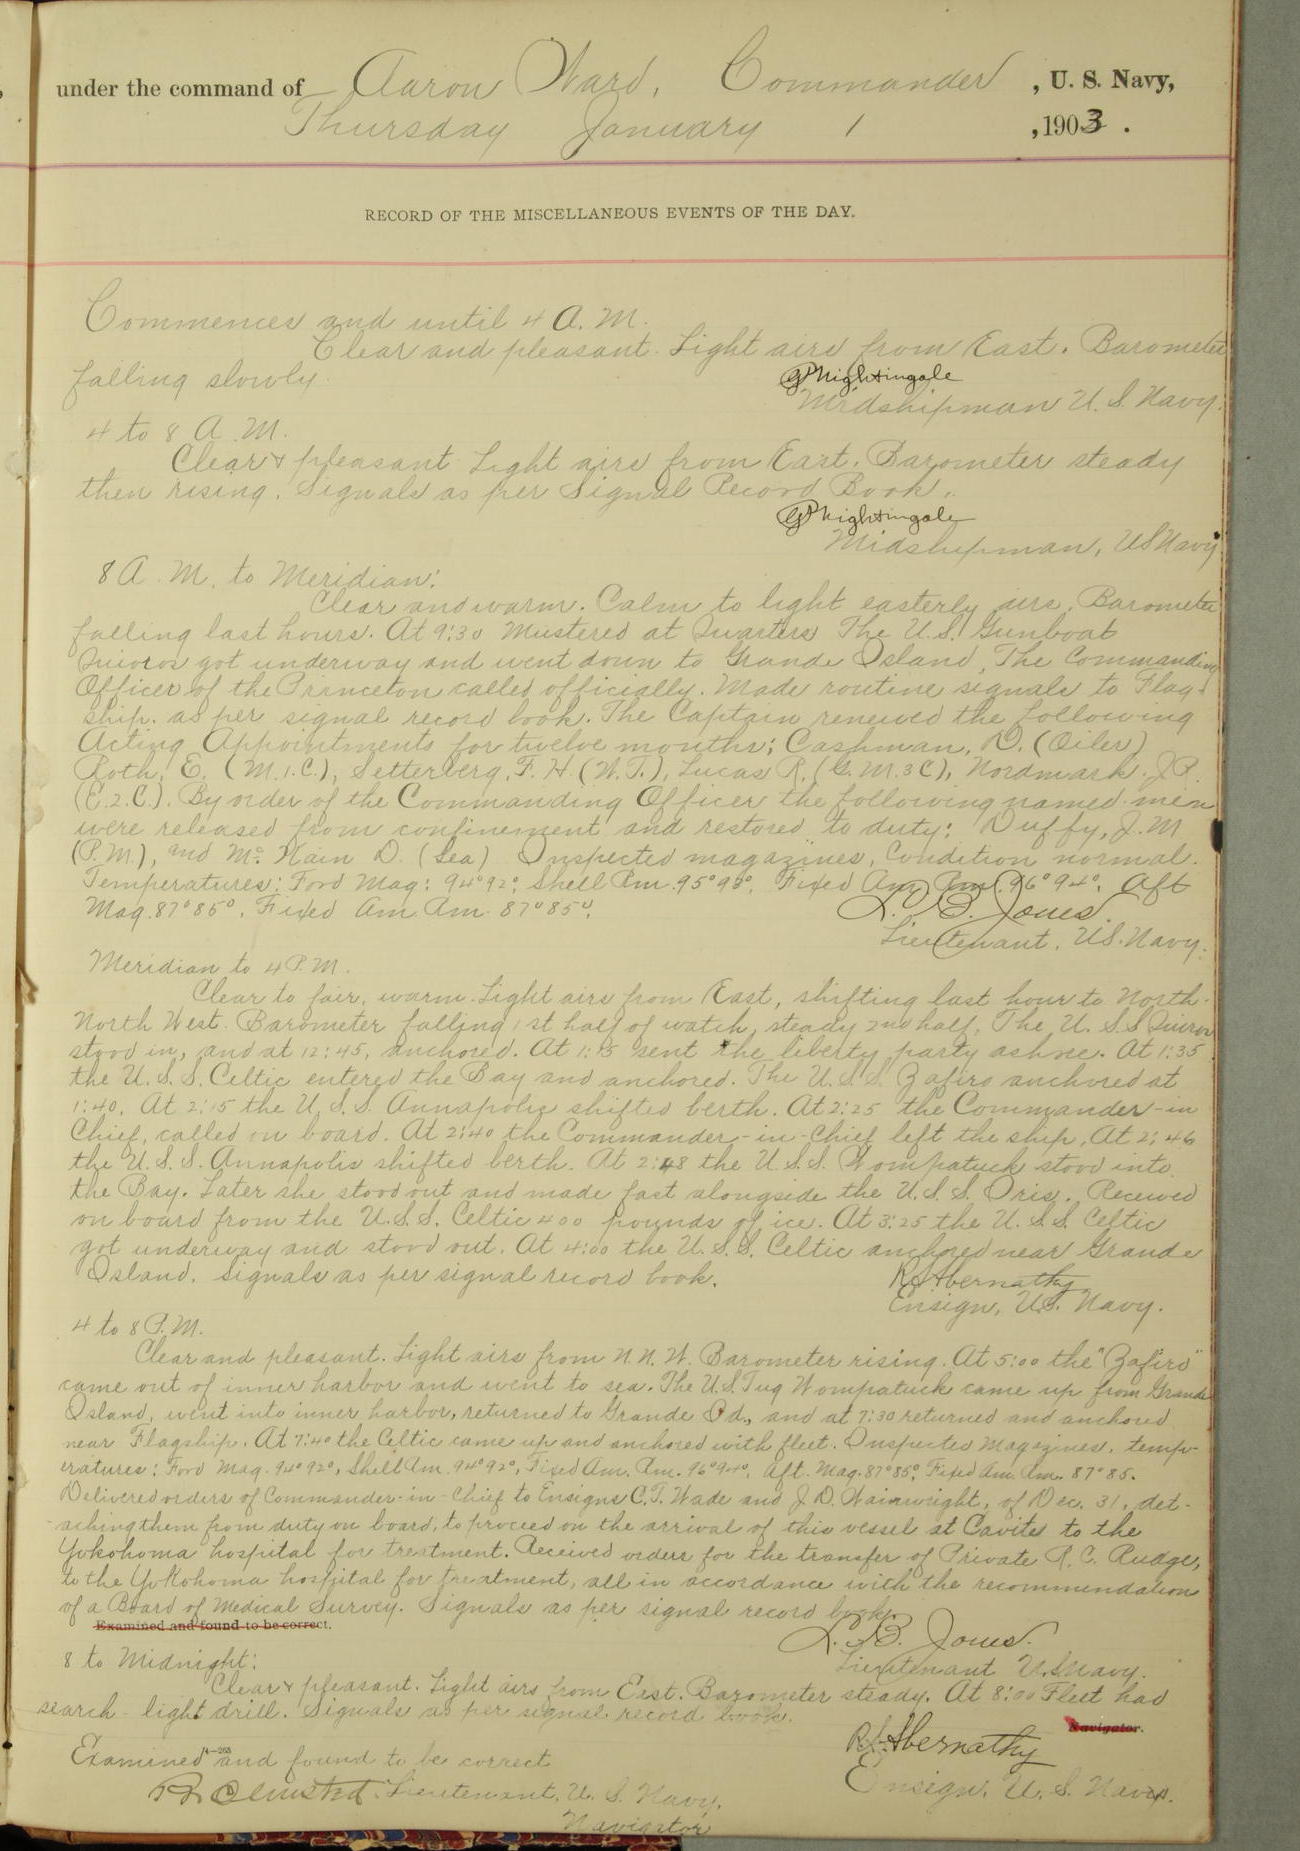 under the command of Aaron Ward, Commander, U. S. Navy,
Thursday January 1, 1903.
RECORD OF THE MISCELLANEOUS EVENTS OF THE DAY.
Commences and until 4 A. M.
Clear and pleasant. Light airs from East. Barometer
falling slowly.
Nightingale
Midshipman U. S. Navy.
4 to 8 A. M.
Clear & pleasant. Light airs from East. Barometer steady
then rising. Signals as per Signal Record Book.
Nightingale
Midshipman, U S Navy
8 A. M. to Meridian:
Clear and warm. Calm to light easterly airs. Barometer
falling last hours. At 9:30 Mustered at Quarters The U.S. Gunboat
Quiros got underway and went down to Grande Island. The Commanding
Officer of the Princeton called officially. Made routine signals to Flag-
ship. as per signal record book. The Captain renewed the following
Acting Appointments for twelve months; Cashman, D. (Oiler)
Roth, E. (M.1.C.), Setterberg, F. H. (W.T.), Lucas R. (G.M.3C), Nordmark. J.P.
(E.2.C.). By order of the Commanding Officer the following named men
were released from confinement and restored to duty: Duffy, J. M
(P.M.), and Mc. Nain D. (Sea) Inspected magazines, condition normal.
Temperatures: Ford Mag: 94°92°; Shell Rm. 95°93°. Fixed Am Rm. 96°94°. Aft
Mag. 87°85°. Fixed Am Rm. 87°85°.
L. B. Jones.
Lieutenant, U.S. Navy.
Meridian to 4 P.M.
Clear to fair, warm. Light airs from East, shifting last hour to North-
North West. Barometer falling 1st half of watch, steady 2nd half. The U. S. S Quiros
stood in, and at 12:45, anchored. At 1:15 sent the liberty party ashore. At 1:35
the U. S. S. Celtic entered the Bay and anchored. The U. S. S. Zafiro anchored at
1:40. At 2:15 the U. S. S. Annapolis shifted berth. At 2:25 the Commander-in
Chief, called on board. At 2:40 the Commander-in-Chief left the ship. At 2:46
the U. S. S. Annapolis shifted berth. At 2:48 the U. S. S. Wompatuck stood into
the Bay. Later she stood out and made fast alongside the U. S. S. Iris. Received
on board from the U. S. S. Celtic 400 pounds of ice. At 3:25 the U. S. S. Celtic
got underway and stood out. At 4:00 the U. S. S. Celtic anchored near Grande
Island. Signals as per signal record book.
R. Abernathy
Ensign, U.S. Navy.
4 to 8 P.M.
Clear and pleasant. Light airs from N. N. W. Barometer rising. At 5:00 the "Zafiro"
came out of inner harbor and went to sea. The U.S. Tug Wompatuck came up from Grande
Island, went into inner harbor, returned to Grande Id., and at 7:30 returned and anchored
near Flagship. At 7:40 the Celtic came up and anchored with fleet. Inspected Magazines. temp-
eratures: Ford Mag. 94°92°, Shell Rm. 94°92°, Fixed Am. Rm. 96°94°, Aft. Mag. 87°85°, Fixed Am. Rm. 87°85.
Delivered orders of Commander-in-Chief to Ensigns C.T. Wade and J. D. Wainwright, of Dec. 31, det-
aching them from duty on board, to proceed on the arrival of this vessel at Cavite to the
Yokohoma hospital for treatment. Received orders for the transfer of Private R. C. Rudge,
to the Yokohoma hospital for treatment, all in accordance with the recommendation
of a Board of Medical Survey. Signals as per signal record book.
Examined and found to be correct.
L. B. Jones.
Lieutenant U.S. Navy.
8 to Midnight:
Clear & pleasant. Light airs from East. Barometer steady. At 8:00 Fleet had
search-light drill. Signals as per signal record book.
Navigator.
R. Abernathy
Ensign, U. S. Navy.
Examined and found to be correct
Olmsted Lieutenant, U. S. Navy,
Navigator